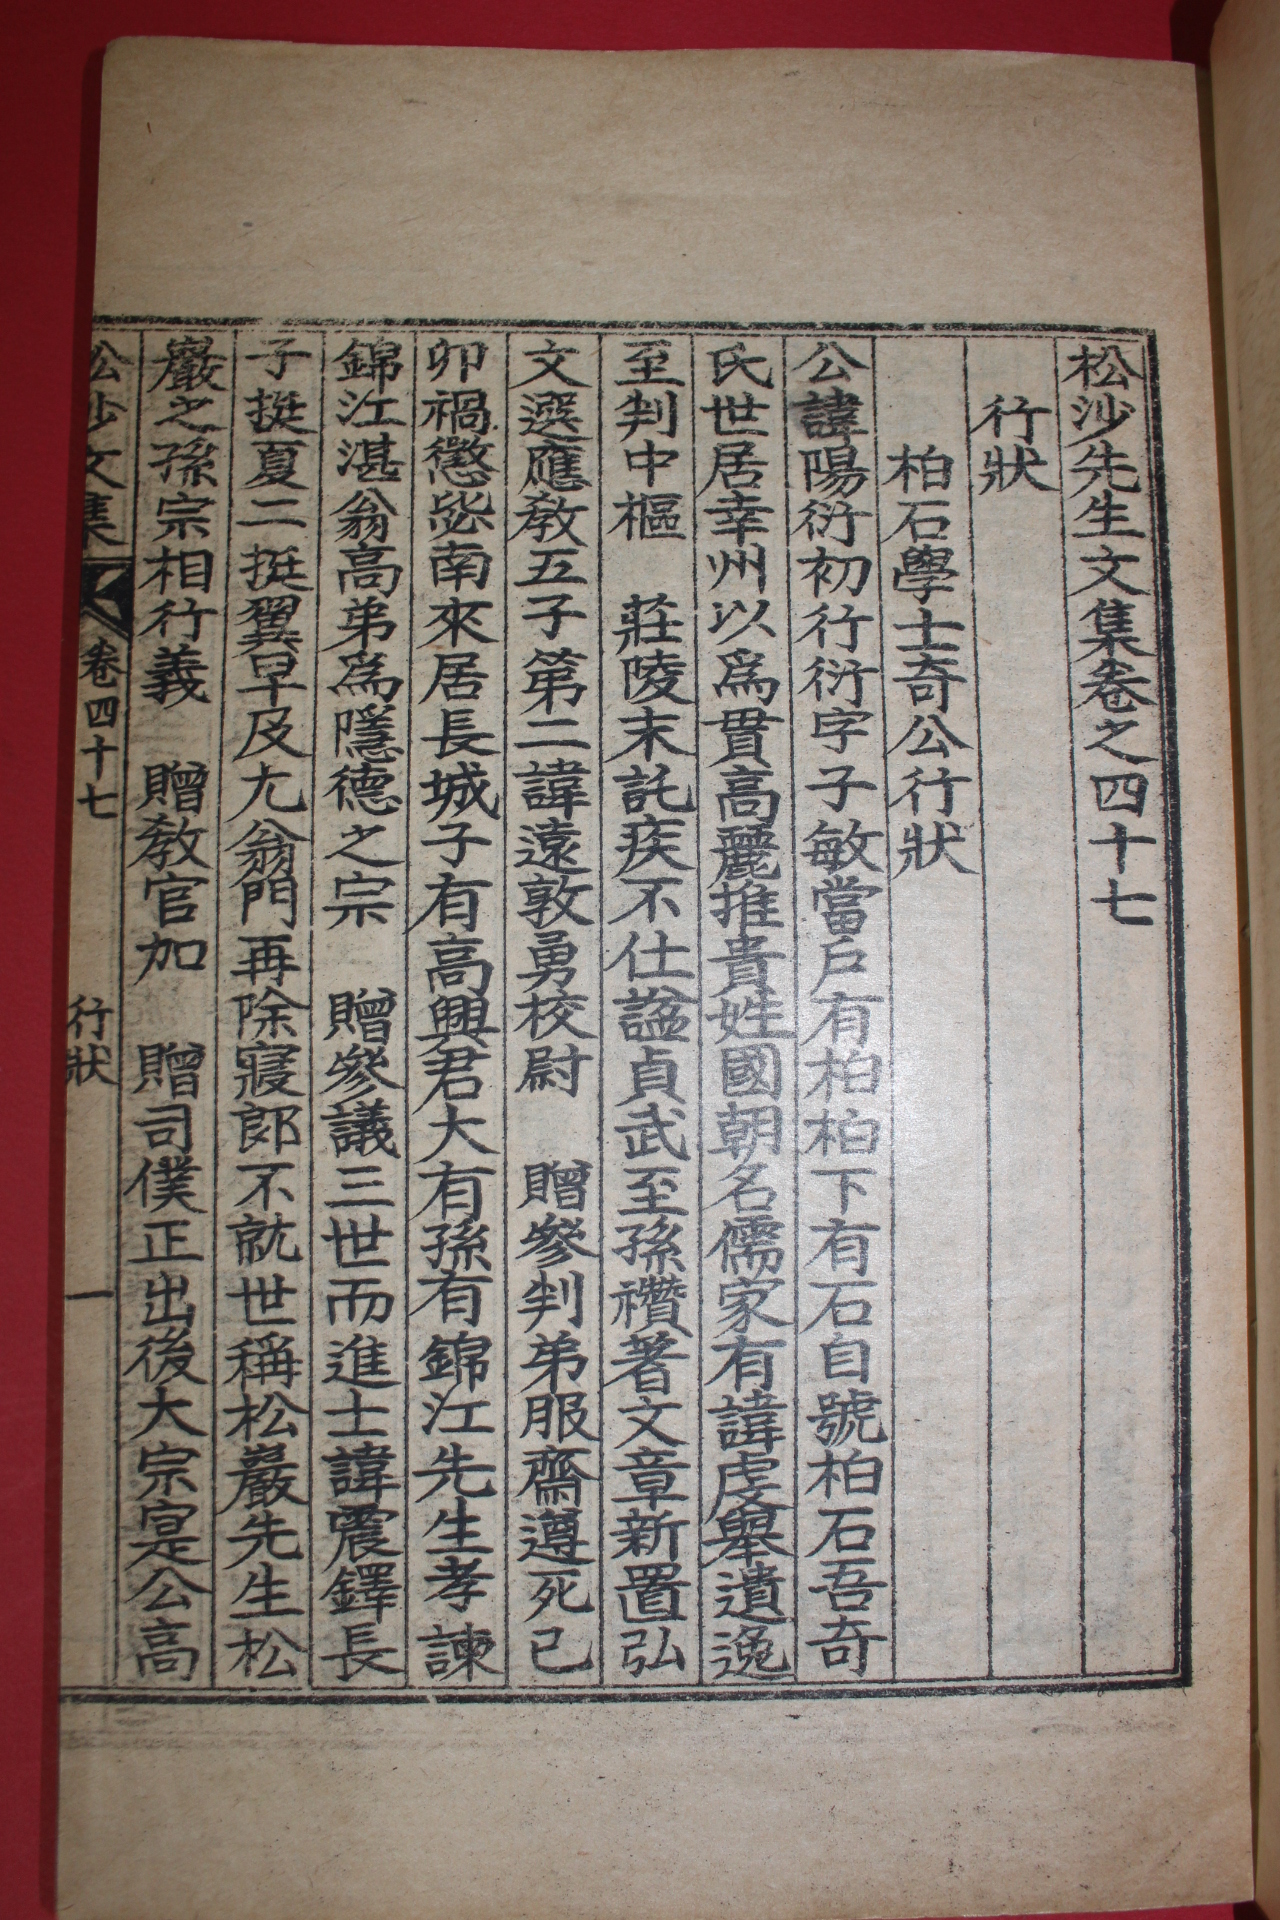 松沙先生文集卷之四十七
行狀
柏石學士奇公行狀
公諱陽衍初行衍字子敏當戶有柏柏下有石自號柏石吾奇
氏世居幸州以爲貫高麗推貴姓國朝名儒家有諱虔擧遺逸
至判中樞 莊陵末託疾不仕諡貞武至孫禶著文章新置弘
文選應敎五子第二諱遠敦勇校尉 贈參判弟服齋遵死己
卯禍懲毖南來居長城子有高興君大有孫有錦江先生孝諫
錦江湛翁高弟爲隱德之宗 贈參議三世而進士諱震鐸長
子挺夏二挺翼早及尤翁門再除寢郞不就世稱松巖先生松
巖之孫宗相行義 贈敎官加 贈司僕正出後大宗寔公高
松沙文集 卷四十七 行狀 一